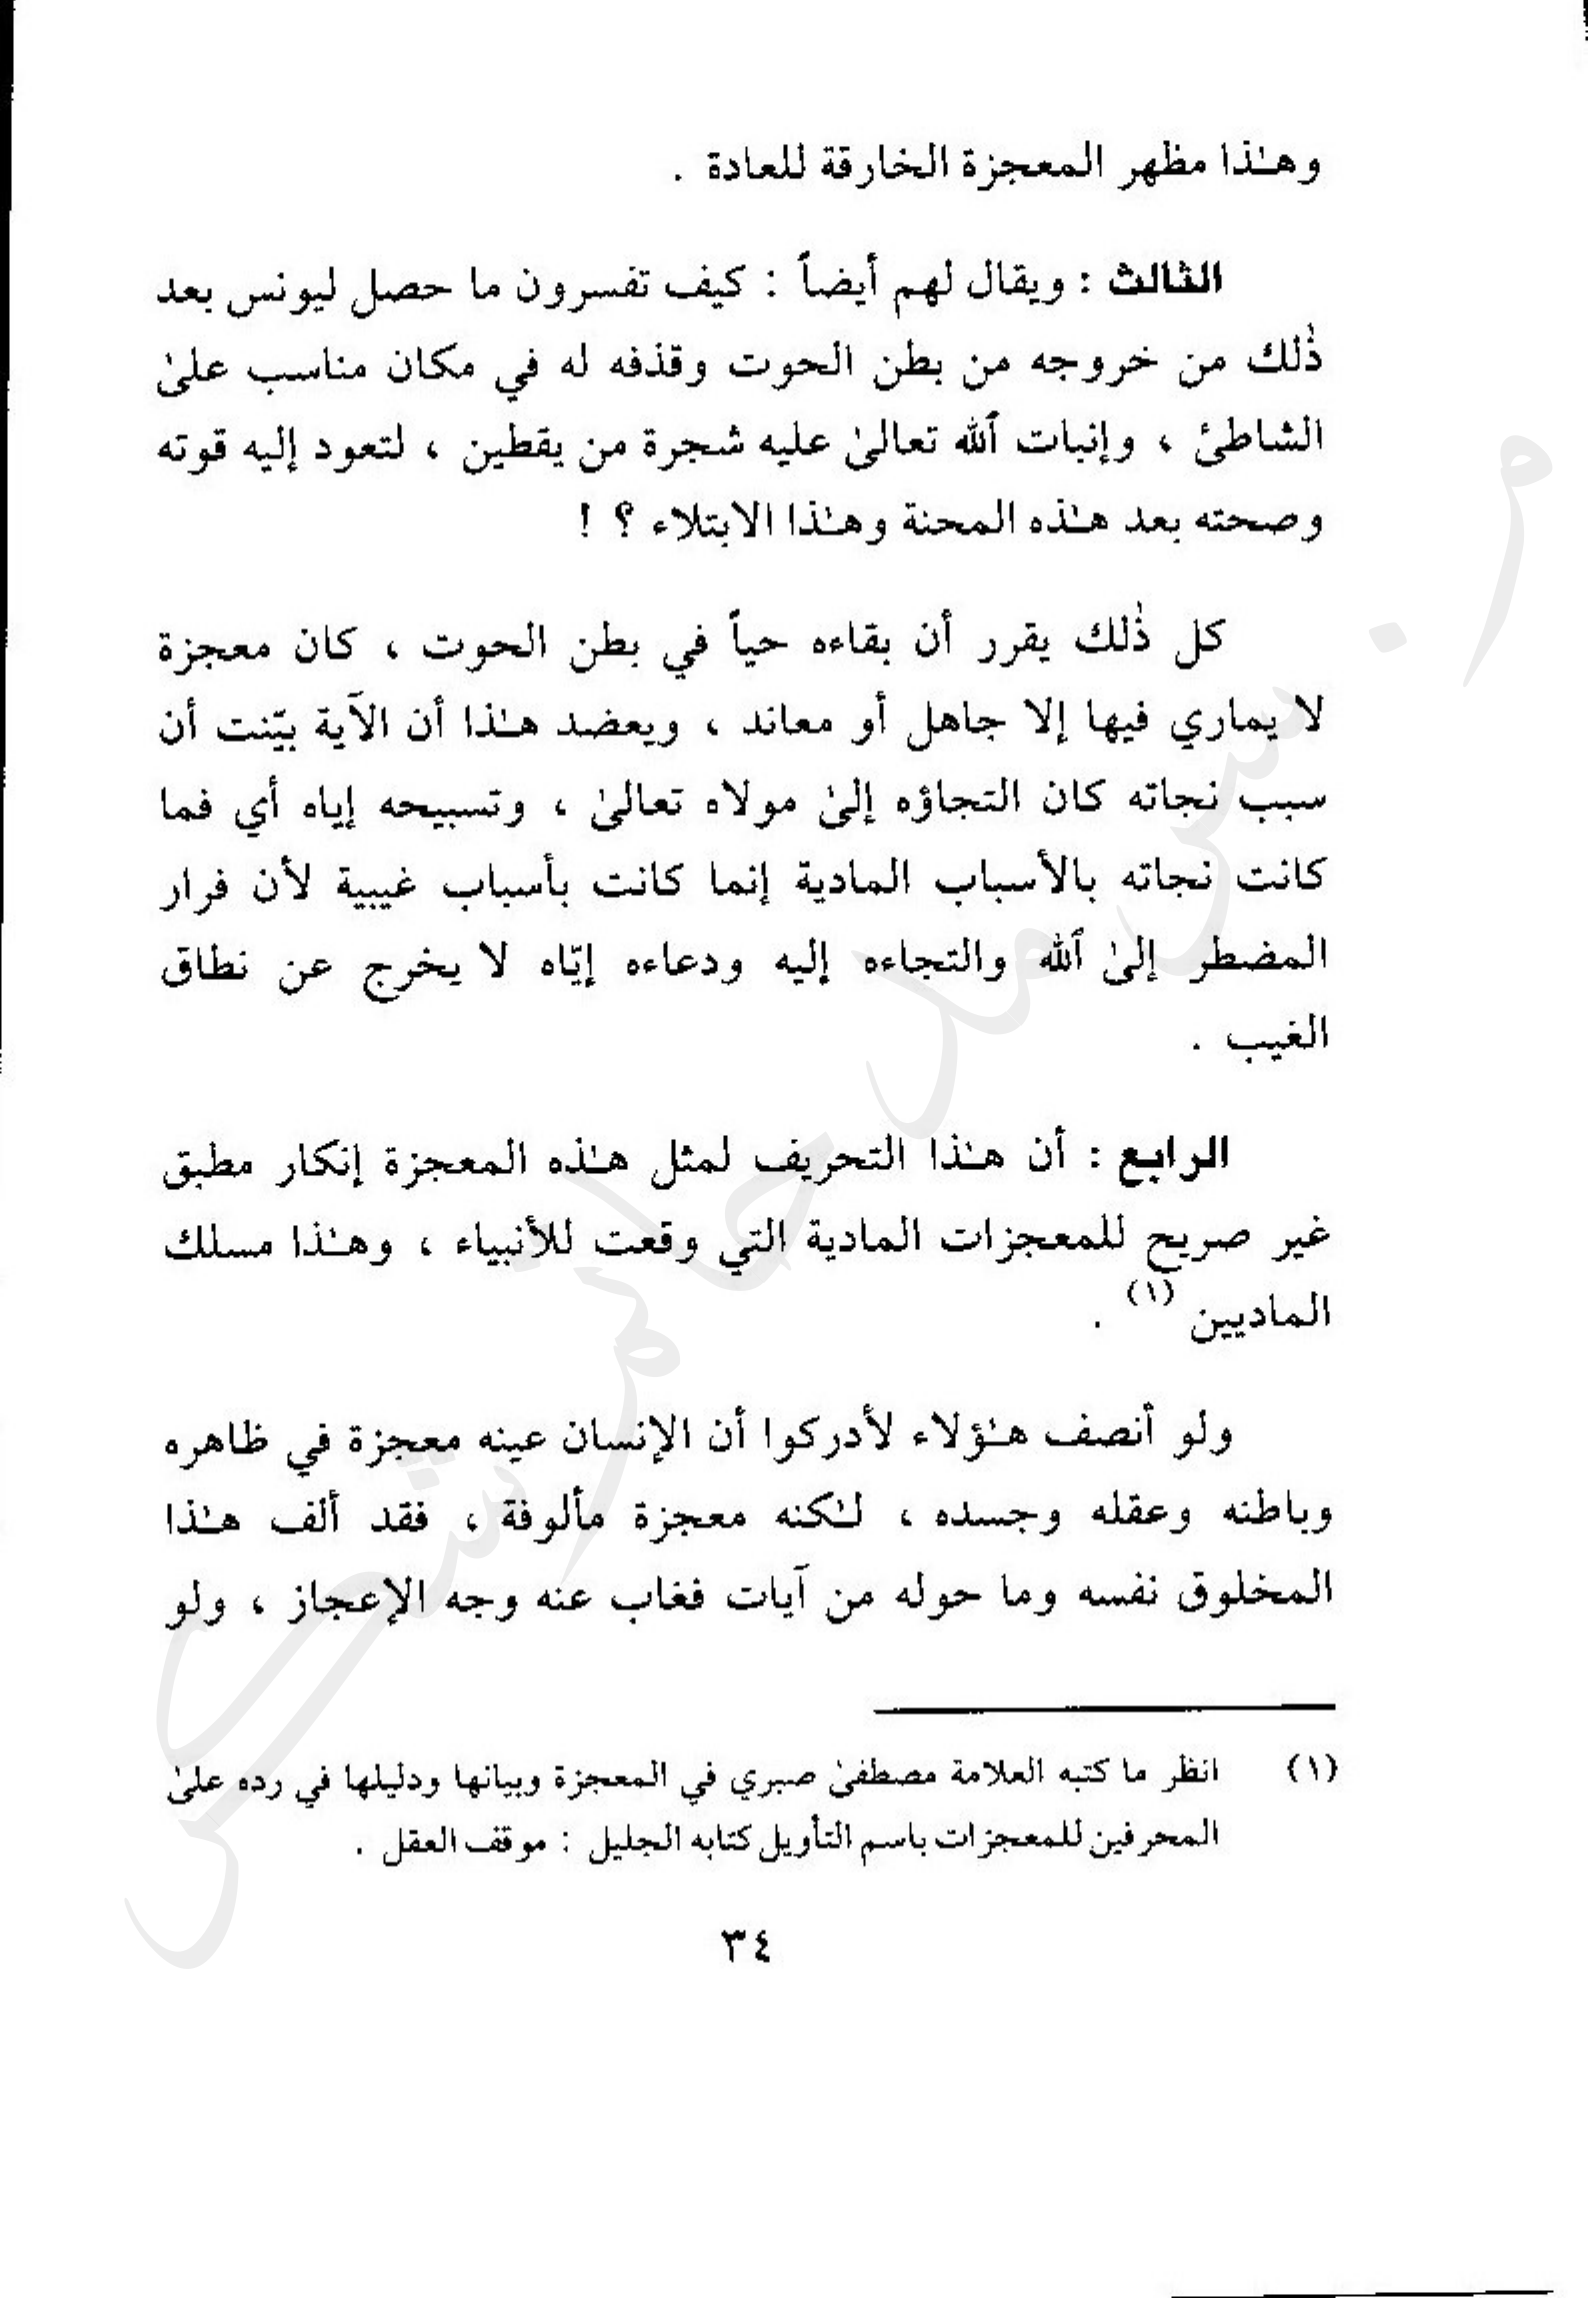 وهـٰذا مظهر المعجزة الخارقة للعادة .
الثالث : ويقال لهم أيضاً : كيف تفسرون ما حصل ليونس بعد
ذٰلك من خروجه من بطن الحوت وقذفه له في مكان مناسب علىٰ
الشاطئ ، وإنبات ٱلله تعالىٰ عليه شجرة من يقطين ، لتعود إليه قوته
وصحته بعد هـٰذه المحنة وهـٰذا الابتلاء ؟ !
كل ذٰلك يقرر أن بقاءه حياً في بطن الحوت ، كان معجزة
لا يماري فيها إلا جاهل أو معاند ، ويعضد هـٰذا أن الآية بيّنت أن
سبب نجاته كان التجاؤه إلىٰ مولاه تعالىٰ ، وتسبيحه إياه أي فما
كانت نجاته بالأسباب المادية إنما كانت بأسباب غيبية لأن فرار
المضطر إلىٰ ٱلله والتجاءه إليه ودعاءه إيّاه لا يخرج عن نطاق
الغيب .
الرابع : أن هـٰذا التحريف لمثل هـٰذه المعجزة إنكار مطبق
غير صريح للمعجزات المادية التي وقعت للأنبياء ، وهـٰذا مسلك
الماديين (١) .
ولو أنصف هـٰؤلاء لأدركوا أن الإنسان عينه معجزة في ظاهره
وباطنه وعقله وجسده ، لـٰكنه معجزة مألوفة ، فقد ألف هـٰذا
المخلوق نفسه وما حوله من آيات فغاب عنه وجه الإعجاز ، ولو
(١) انظر ما كتبه العلامة مصطفىٰ صبري في المعجزة وبيانها ودليلها في رده علىٰ
المحرفين للمعجزات باسم التأويل كتابه الجليل : موقف العقل .
٣٤